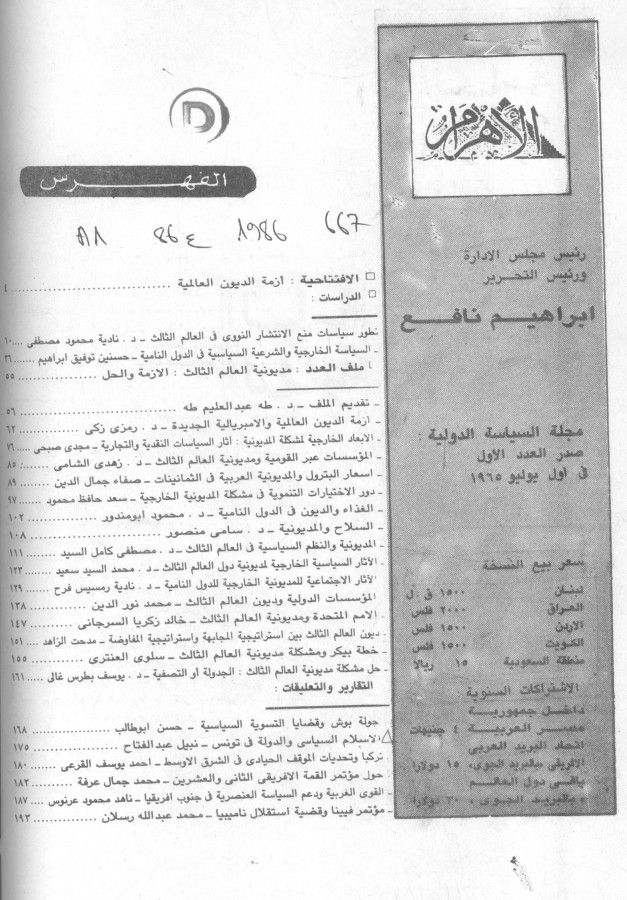 الأهرام
رئيس مجلس الادارة
ورئيس التحرير
ابراهيم نافع
مجلة السياسة الدولية :
صدر العدد الأول
فى أول يوليو ١٩٦٥
سعر بيع النسخة
لبنان ١٥٠٠ ق . ل
العراق ٢٠٠٠ فلس
الاردن ١٥٠٠ فلس
الكويت ١٥٠٠ فلس
منطقة السعودية ١٥ ريالا
الاشتراكات السنوية
داخل جمهورية
مصر العربية ٤ جنيهات
اتحاد البريد العربى
الافريقى بالبريد الجوى، ١٥ دولارا
باقى دول العالم
بالبريد الجوى، ٣٠ دولارا
D
الفهرس
A1 86 ع 1986 667
□ الافتتاحية : أزمة الديون العالمية .......................... ٤
□ الدراسات :
تطور سياسات منع الانتشار النووى فى العالم الثالث ــ د . نادية محمود مصطفى .... ١٠
ــ السياسة الخارجية والشرعية السياسية فى الدول النامية ــ حسنين توفيق ابراهيم ....... ٣٦
ملف العدد : مديونية العالم الثالث : الازمة والحل .................. ٥٥
ــ تقديم الملف ــ د . طه عبدالعليم طه .......................... ٥٦
ــ أزمة الديون العالمية والامبريالية الجديدة ــ د . رمزى زكى .......... ٦٢
ــ الابعاد الخارجية لمشكلة المديونية : آثار السياسات النقدية والتجارية ــ مجدى صبحى ..... ٧٦
ــ المؤسسات عبر القومية ومديونية العالم الثالث ــ د . زهدى الشامى ....... ٨٥
ــ اسعار البترول والمديونية العربية فى الثمانينات ــ صفاء جمال الدين ........ ٨٩
ــ دور الاختيارات التنموية فى مشكلة المديونية الخارجية ــ سعد حافظ محمود ....... ٩٧
ــ الغذاء والديون فى الدول النامية ــ د . محمود ابومندور .............. ١٠٢
ــ السلاح والمديونية ــ د . سامى منصور ........................ ١٠٨
ــ المديونية والنظم السياسية فى العالم الثالث ــ د . مصطفى كامل السيد ........ ١١١
ــ الآثار السياسية الخارجية لمديونية دول العالم الثالث ــ د . محمد السيد سعيد ........ ١٢٣
الآثار الاجتماعية للمديونية الخارجية للدول النامية ــ د . نادية رمسيس فرح ........ ١٢٩
المؤسسات الدولية وديون العالم الثالث ــ محمد نور الدين ............ ١٣٨
ــ الامم المتحدة ومديونية العالم الثالث ــ خالد زكريا السرجانى .......... ١٤٧
ــ ديون العالم الثالث بين استراتيجية المجابهة واستراتيجية المفاوضة ــ مدحت الزاهد .... ١٥١
ــ خطة بيكر ومشكلة مديونية العالم الثالث ــ سلوى العنترى ............ ١٥٥
ــ حل مشكلة مديونية العالم الثالث : الجدولة أو التصفية ــ د . يوسف بطرس غالى ..... ١٦١
التقارير والتعليقات :
جولة بوش وقضايا التسوية السياسية ــ حسن ابوطالب .................. ١٦٨
الاسلام السياسى والدولة فى تونس ــ نبيل عبدالفتاح .................. ١٧٥
تركيا وتحديات الموقف الحيادى فى الشرق الاوسط ــ احمد يوسف القرعى ...... ١٨٠
حول مؤتمر القمة الافريقى الثانى والعشرين ــ محمد جمال عرفة .......... ١٨٢
ــ القوى الغربية ودعم السياسة العنصرية فى جنوب افريقيا ــ ناهد محمود عرنوس .... ١٨٧
ــ مؤتمر فيينا وقضية استقلال ناميبيا ــ محمد عبدالله رسلان ............ ١٩٣